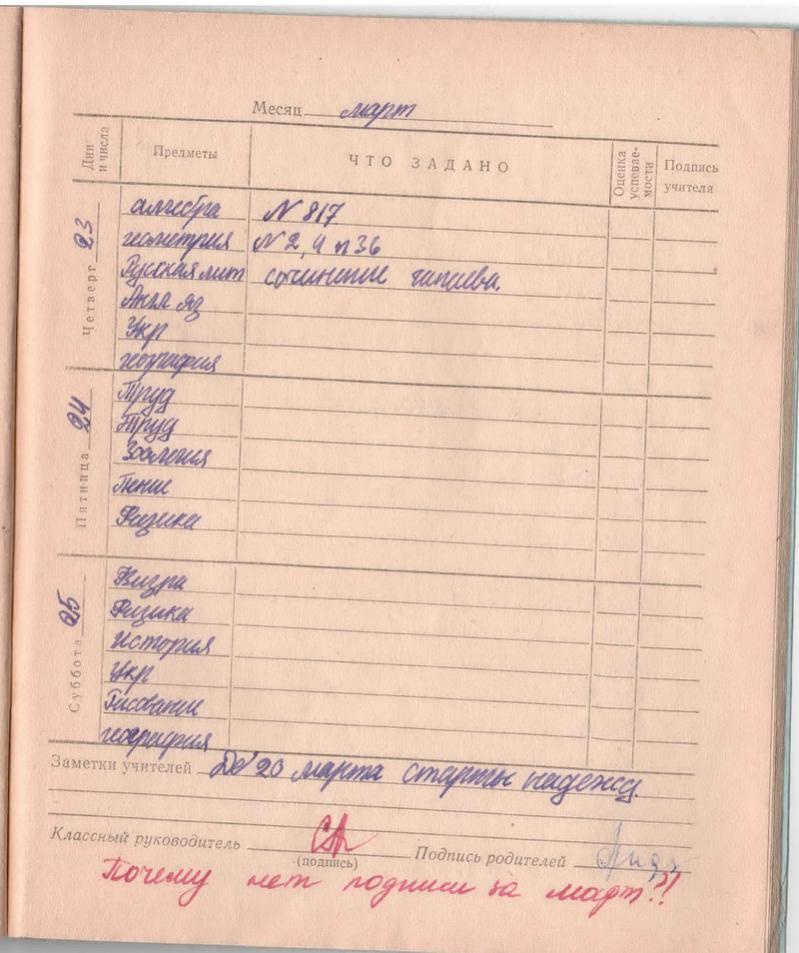 Месяц март
Дни и числа Предметы ЧТО ЗАДАНО Оценка успевае-мости Подпись учителя
Четверг 23
алгебра N 817
геометрия N 2, 4 п 36
Русская лит сочинение
Англ яз
Укр
география
Пятница 24
Труд
Труд
Зоология
Пение
Физика
Суббота 25
Физра
Физика
История
Укр
Рисование
география
Заметки учителей До 20 марта старты надежд
Классный руководитель
(подпись)
Подпись родителей
Почему нет подписи за март?!